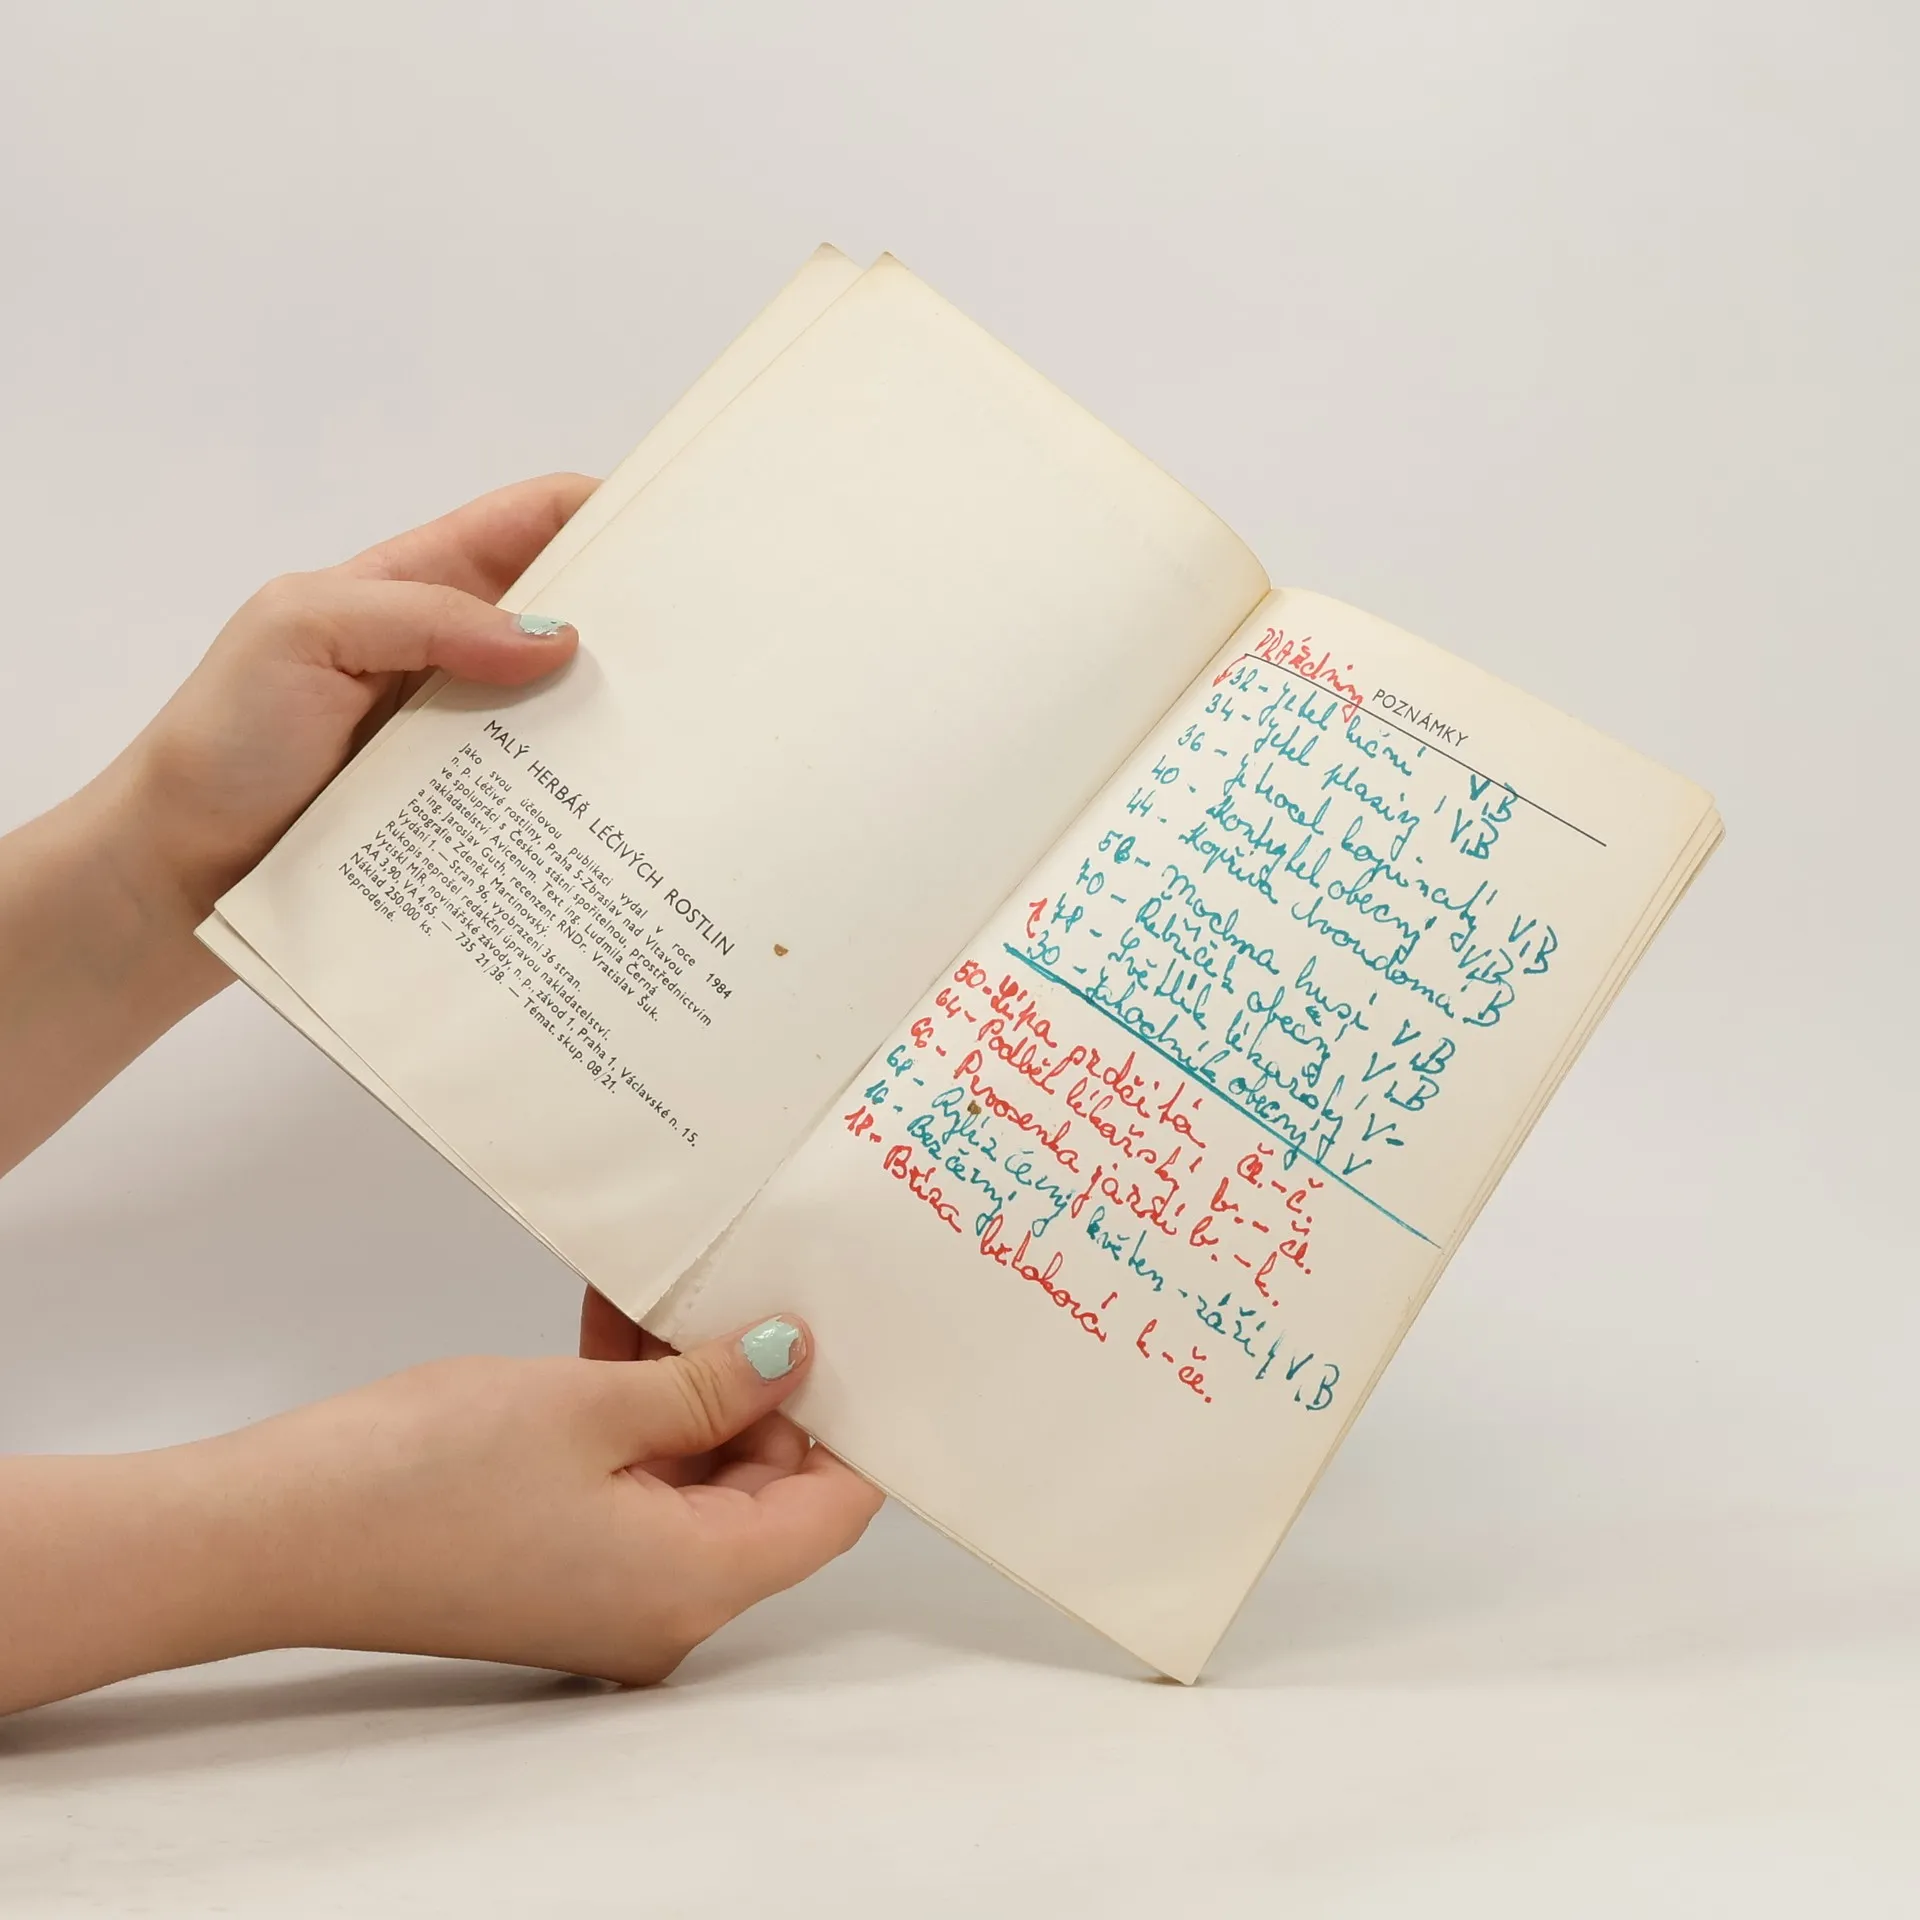 MALÝ HERBÁŘ LÉČIVÝCH ROSTLIN
Jako svou účelovou publikaci vydal v roce 1984
n. p. Léčivé rostliny, Praha 5-Zbraslav nad Vltavou
ve spolupráci s Českou státní spořitelnou, prostřednictvím
nakladatelství Avicenum. Text ing. Ludmila Černá
a ing. Jaroslav Guth, recenzent RNDr. Vratislav Šuk.
Fotografie Zdeněk Martinovský.
Vydání 1. — Stran 96, vyobrazení 36 stran.
Rukopis neprošel redakční úpravou nakladatelství.
Vytiskl MÍR, novinářské závody, n. p., závod 1, Praha 1, Václavské n. 15.
AA 3,90, VA 4,65. — 735 21/38. — Témat. skup. 08/21.
Náklad 250.000 ks.
Neprodejné.
PRÁZdniny
POZNÁMKY
32 - Jetel luční V,B
34 - Jetel plazivý V,B
36 - Jitrocel kopinatý V,B
40 - Kontryhel obecný V,B
44 - Kopřiva dvoudomá B
56 - Mochna husí V,B
70 - Řebříček obecný V,B
78 - Světlík lékařský V-
30 - Jahodník obecný V
50 - Lípa srdčitá če.-č.
64 - Podběl lékařský b. - č.
66 - Prvosenka jarní b. - k.
68 - Rybíz černý květen - září V,B
16 - Bez černý
18 - Bříza bělokorá k - če.